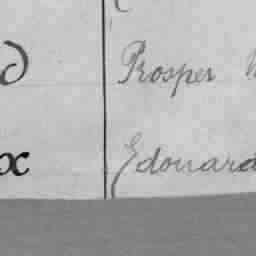 Prosper
x Edouard